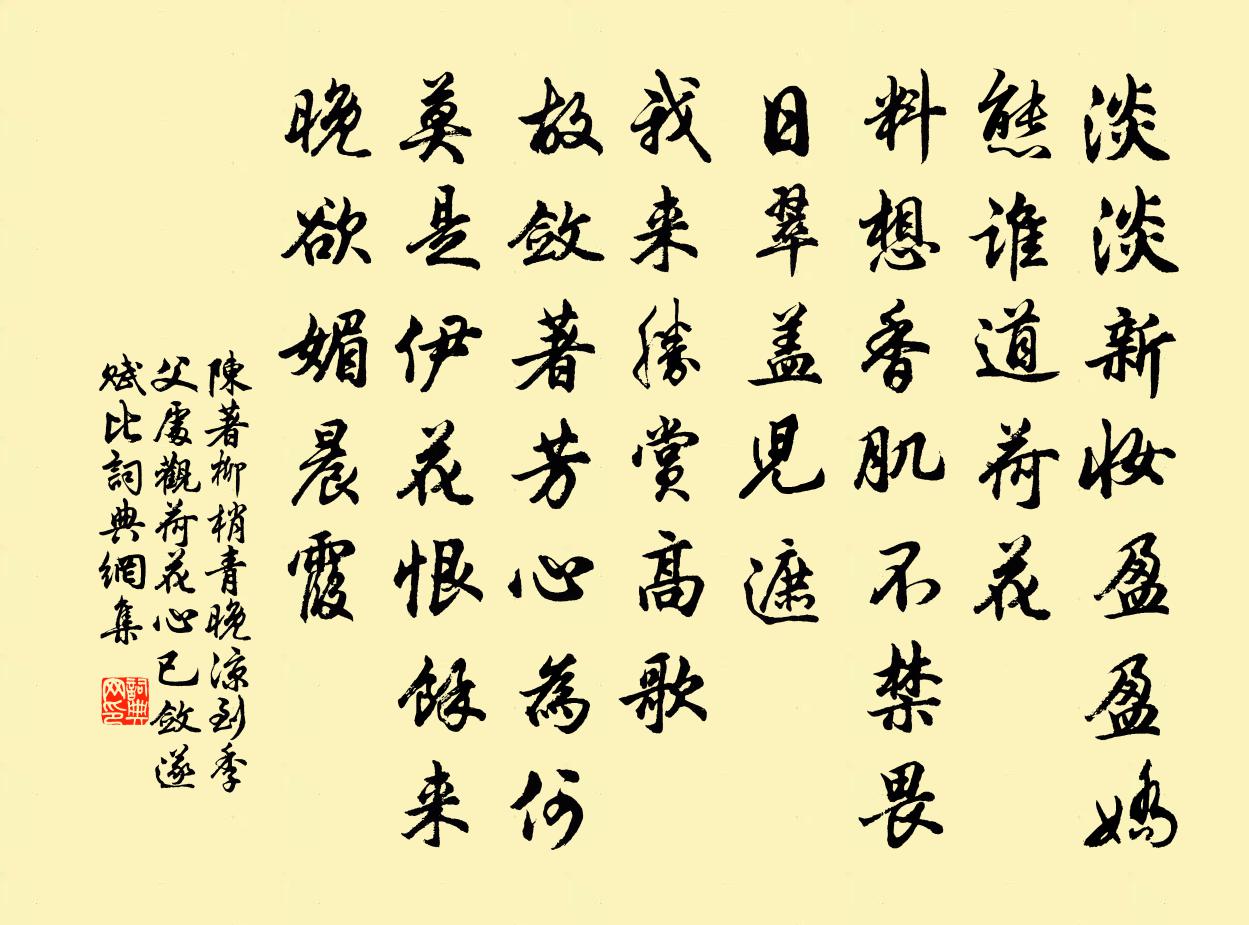 淡淡新妝盈盈嬌
態誰道荷花
料想香肌不禁畏
日翠盖兒遮
我来勝賞高歌
故斂著芳心為何
莫是伊花恨餘来
晚欲媚晨霞
陳著柳梢青晚涼到季
父處觀荷花心已斂遂
賦比詞典網集
詞典网印